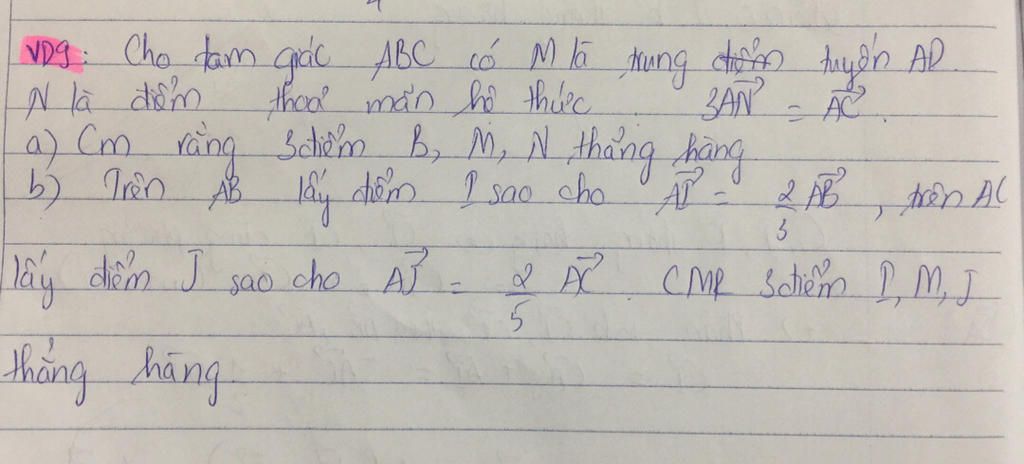 VD9: Cho tam giác ABC có M là trung điểm tuyến AD.
N là điểm thoả mãn hệ thức 3AN⃗ = AC⃗.
a) Cm rằng 3 điểm B, M, N thẳng hàng
b) Trên AB lấy điểm I sao cho AI⃗ = 2/3 AB⃗, trên AC
lấy điểm J sao cho AJ⃗ = 2/5 AC⃗. CMR 3 điểm I, M, J
thẳng hàng.